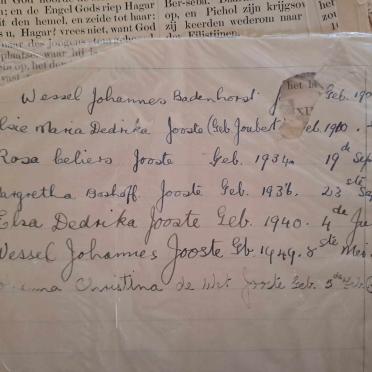 en de Engel Gods riep Hagar
it den hemel, en zeide tot haar:
s u, Hagar? vrees niet, want God
Ber-seba.
op, en Pichol zijn krijgsov
zij keerden wederom naar
der Filistijnen.
het la
Wessel Johannes Badenhorst J Geb. 190
lsie Maria Dedrika Jooste (Geb. Joubert) Geb. 1910.
Rosa beliers Jooste Geb. 1934. 19de Sep
argretha Boshoff. Jooste Geb. 1936. 23ste Sep
Elsa Dedrika Jooste Geb. 1940. 4de Ju
Wessel Johannes Jooste Geb. 1949. 8ste Mei
Christina de Wet Jooste Geb. 5de